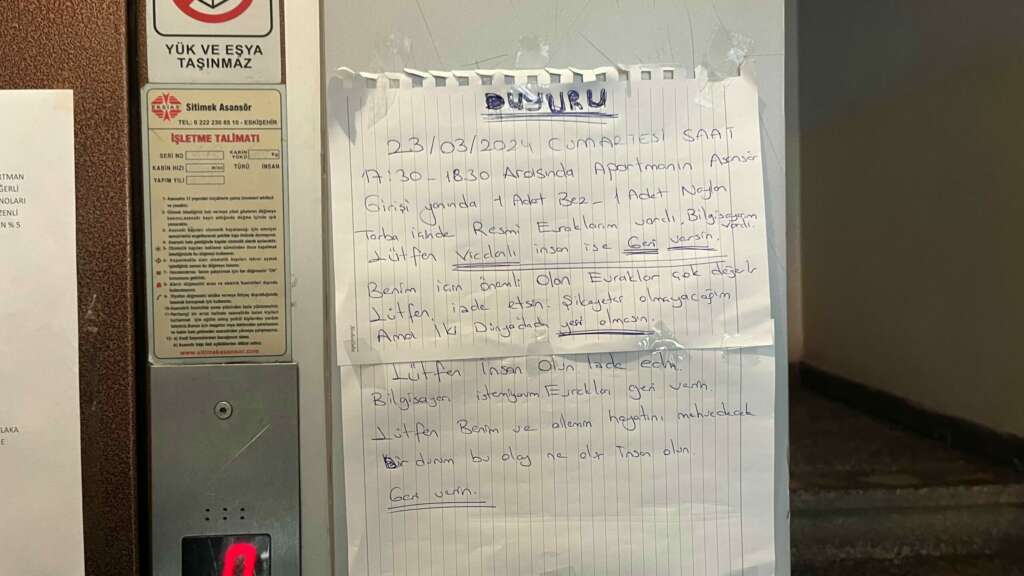 YÜK VE EŞYA
TAŞINMAZ
EKSİAD
Sitimek Asansör
TEL: 0 222 230 85 10 - ESKİŞEHİR
İŞLETME TALİMATI
SERİ NO
KABİN YÜKÜ
Kg
KABİN HIZI
m/sn
TÜRÜ
İNSAN
YAPIM YILI
www.sitimekasansor.com
RTMAN
ĞERLİ
NOLARI
ZENLİ
N % 5
LAKA
E
DUYURU
23/03/2024 CUMARTESİ SAAT
17:30-18.30 Arasında Apartmanın Asansör
Girişi yanında 1 Adet Bez - 1 Adet Naylon
Torba içinde Resmi Evraklarım vardı. Bilgisayarım
vardı.
Lütfen Vicdanlı insan ise Geri versin.
Benim için önemli Olan Evraklar çok değerli
Lütfen iade etsin. Şikayetçi olmayacağım
Ama İki Dünyadada yeri olmasın.
Lütfen İnsan Olun İade edin.
Bilgisayarı istemiyorum Evrakları geri verin.
Lütfen Benim ve ailemin hayatını mahvedecek
Bir durum bu olay ne olur İnsan olun.
Geri verin.
0